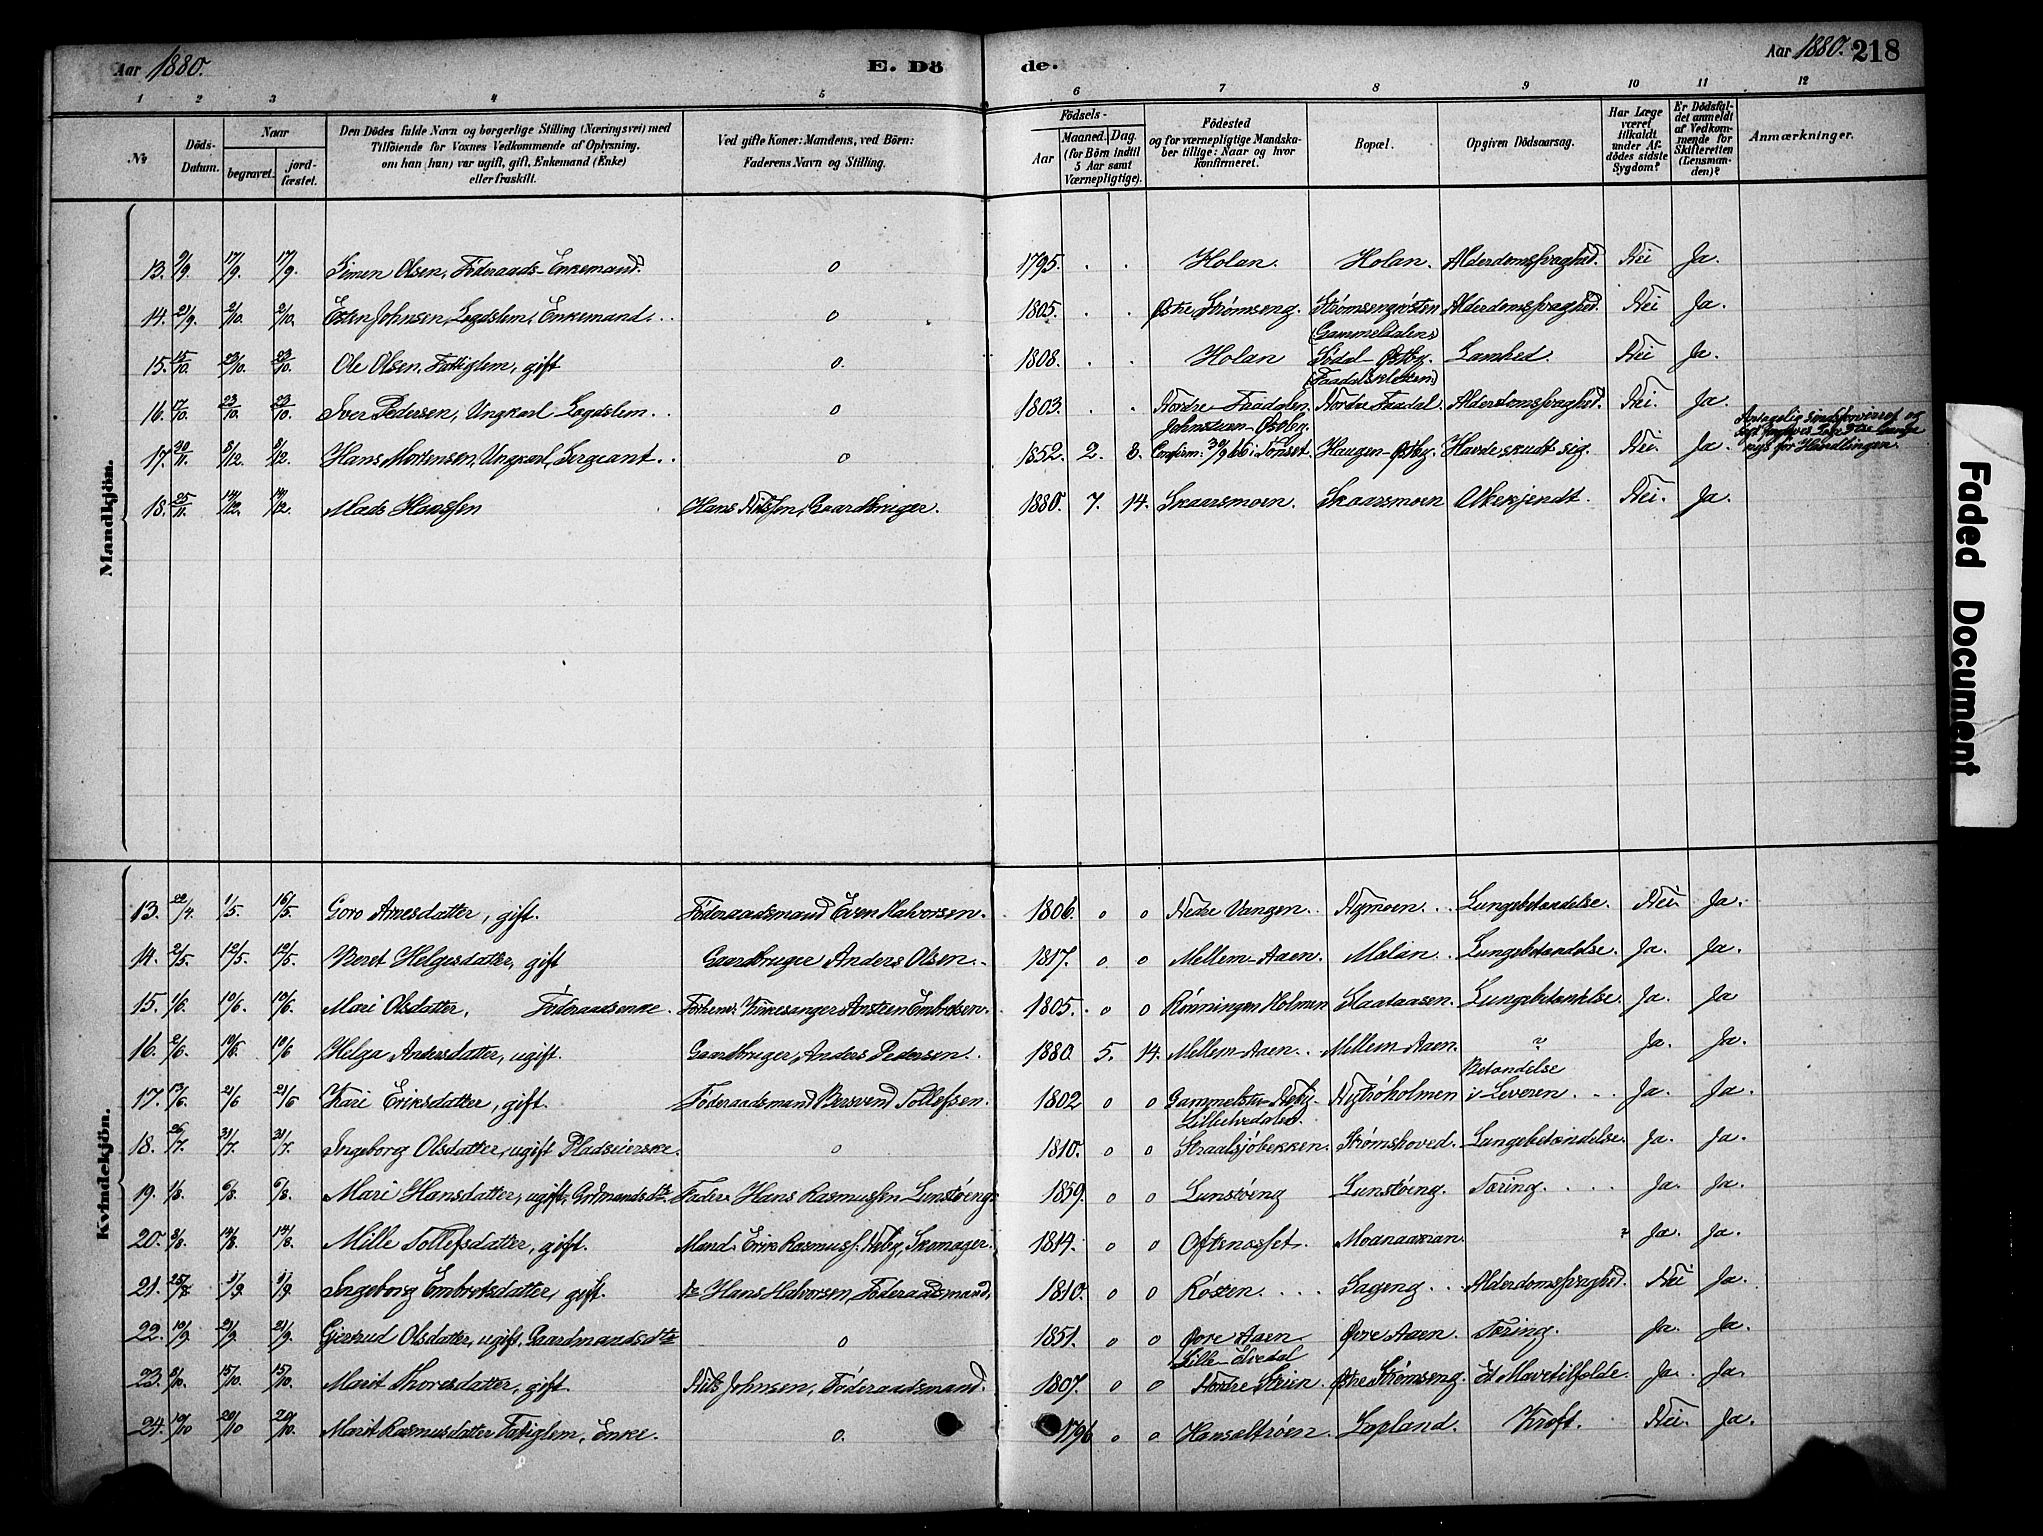 Aar 1880. E. Dö de. Aar 1880. 218
1 2 3 4 5 6 7 8 9 10 11 12
No
Döds-Datum.
Naar
begravet.
jord-fæstet.
Den Dödes fulde Navn og borgerlige Stilling (Næringsvei) med
Tilföiende for Voxnes Vedkommende af Oplysning.
om han (hun) var ugift, gift, Enkemand (Enke)
eller fraskilt.
Ved gifte Koner: Mandens, ved Börn:
Faderens Navn og Stilling.
Födsels-
Aar
Maaned. Dag.
(for Börn indtil
5 Aar samt
Værnepligtige).
Födested
og for værnepligtige Mandska-
ber tillige: Naar og hvor
konfirmeret.
Bopæl.
Opgiven Dödsaarsag.
Har Læge
været
tilkaldt
under Af-
dödes sidste
Sygdom?
Er Dödsfal-
det anmeldt
af Vedkom-
mende for
Skifteretten
(Lensman-
den)?
Anmærkninger.
Mandkjön.
13. 9/9. 17/9. 17/9. Simen Olsen, Föderaads-Enkemand. o 1795. . . Holan. Holan. Alderdomssvaghed. Nei Ja.
14. 21/9. 2/10. 2/10. Esten Johnsen, Lægdslem, Enkemand. o 1805. . . Østre Strømseng. Strømsengrøsten Alderdomssvaghed. Nei Ja.
(Gammeldalens)
15. 15/10. 23/10. 23/10. Ole Olsen, Fattiglem, gift o. 1808. . . Holan Sødal-Østby. Lamhed. Nei Ja.
(Faadalskletten)
16. 17/10. 23/10. 23/10. Iver Pedersen, Ungkarl Lægdslem. o 1803. . . Nordre-Faadalen. Nordre Faadal. Alderdomssvaghed. Nei. Ja.
Johnstuen-Østby.
17. 20/11. 8/12. 8/12. Hans Mortensen, Ungkarl, Sergeant. o 1852. 2. 8. Confirm: 30/9 66 i Tönset. Haugen-Østby. Havde skudt sig. Nei. Ja.
18. 25/11. 14/12. 14/12. Mads Hanssen Hans Nilssen, Gaardbruger. 1880. 7. 14. Skaarsmoen. Skaarsmoen Ubekjendt. Nei. Ja.
Kvindekjön.
13. 22/4. 1/5. 16/5. Goro Arnesdatter, gift. Föderaadsmand Even Halvorsen. 1806. o o Nedre Vangen. Nymoen. Lungebetændelse. Nei Ja.
14. 2/5. 12/5. 12/5. Beret Helgesdatter, gift Gaardbruger Anders Olsen. 1817. o o Mellem-Aaen. Molan. Lungebetændelse. Ja. Ja.
15. 1/6. 10/6. 10/6. Mari Olsdatter, Föderaadsenke. Forhenv: Kirkesanger Arnsteen Embretsen. 1805. o o Rönningen Holmen Staataasen. Lungebetændelse. Ja. Ja
16. 2/6. 10/6. 10/6 Helga Andersdatter, ugift. Gaardbruger, Anders Pedersen. 1880. 5. 14. Mellem-Aaen. Mellem-Aaen. ? Ja. Ja.
Betændelse
17. 13/6. 21/6 21/6 Kari Eriksdatter, gift. Föderaadsmand Bersvend Tollefsen. 1802 o o Gammelstu-Neby. Nytrøholmen i Leveren. Ja. Ja.
Lilleelvedalen
18. 26/7. 31/7. 31/7. Ingeborg Olsdatter, ugift Pladseierske. o 1810. o o Straalsjöbekken. Strømshoved. Lungebetændelse. Ja. Ja.
19. 1/8. 6/8. 6/8. Mari Hansdatter, ugift, Grdmandsdtr Fader: Hans Rasmussen Lunstöeng. 1859. o o Lunstöeng Lunstöeng. Tæring. Ja. Ja.
20. 3/8. 14/8. 14/8. Mille Tollefsdatter, gift. Mand: Erik Rasmuss. Neby, Skomager. 1814. o o Oftenosset. Moanaaxlan ? Ja. Ja.
21. 25/8. 3/9. 3/9. Ingeborg Embretsdatter, gift. Hans Halvorsen, Föderaadsmand. 1810. o o Rösten. Sageng Alderdomssvaghed. Nei Ja.
22. 10/9. 21/9. 21/9. Gjertrud Olsdatter, ugift, Gaardmandsdtr o 1851. o o Øvre Aaen. Øvre Aaen. Tæring. Ja. Ja.
Lille-Elvedal
23. 3/10. 15/10. 15/10. Marit Thoresdatter, gift. Nils Johnsen, Föderaadsmand. 1807. o o Nordre Steien. Østre Strømseng. Et Mavetilfælde. Ja. Ja.
24. 10/10 20/10 20/10. Marit Rasmusdatter Fattiglem, Enke. o. 1796 o o Hansaltröen. Lopland. Kræft. Nei. Ja.
Faded Document